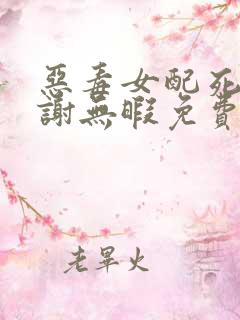 惡毒女配死
謝無暇免費
老畢火